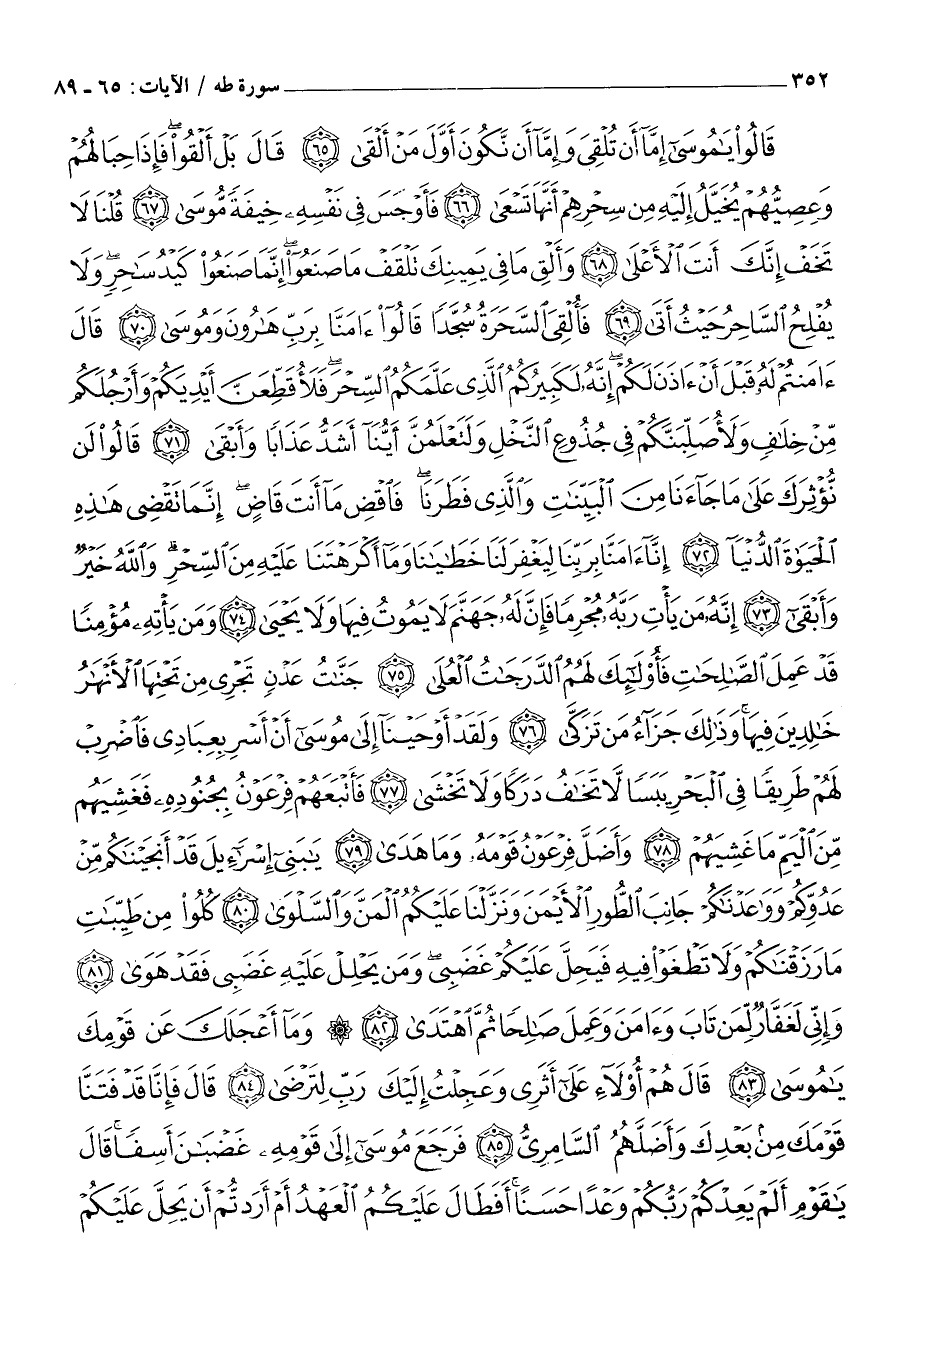 ٣٥٢ سورة طه / الآيات: ٦٥ - ٨٩
قَالُوا۟ يَـٰمُوسَىٰٓ إِمَّآ أَن تُلْقِىَ وَإِمَّآ أَن نَّكُونَ أَوَّلَ مَنْ أَلْقَىٰ ﴿٦٥﴾ قَالَ بَلْ أَلْقُوا۟ۖ فَإِذَا حِبَالُهُمْ
وَعِصِيُّهُمْ يُخَيَّلُ إِلَيْهِ مِن سِحْرِهِمْ أَنَّهَا تَسْعَىٰ ﴿٦٦﴾ فَأَوْجَسَ فِى نَفْسِهِۦ خِيفَةً مُّوسَىٰ ﴿٦٧﴾ قُلْنَا لَا
تَخَفْ إِنَّكَ أَنتَ ٱلْأَعْلَىٰ ﴿٦٨﴾ وَأَلْقِ مَا فِى يَمِينِكَ تَلْقَفْ مَا صَنَعُوٓا۟ۖ إِنَّمَا صَنَعُوا۟ كَيْدُ سَـٰحِرٍۖ وَلَا
يُفْلِحُ ٱلسَّاحِرُ حَيْثُ أَتَىٰ ﴿٦٩﴾ فَأُلْقِىَ ٱلسَّحَرَةُ سُجَّدًا قَالُوٓا۟ ءَامَنَّا بِرَبِّ هَـٰرُونَ وَمُوسَىٰ ﴿٧٠﴾ قَالَ
ءَامَنتُمْ لَهُۥ قَبْلَ أَنْ ءَاذَنَ لَكُمْۖ إِنَّهُۥ لَكَبِيرُكُمُ ٱلَّذِى عَلَّمَكُمُ ٱلسِّحْرَۖ فَلَأُقَطِّعَنَّ أَيْدِيَكُمْ وَأَرْجُلَكُم
مِّنْ خِلَـٰفٍ وَلَأُصَلِّبَنَّكُمْ فِى جُذُوعِ ٱلنَّخْلِ وَلَتَعْلَمُنَّ أَيُّنَآ أَشَدُّ عَذَابًا وَأَبْقَىٰ ﴿٧١﴾ قَالُوا۟ لَن
نُّؤْثِرَكَ عَلَىٰ مَا جَآءَنَا مِنَ ٱلْبَيِّنَـٰتِ وَٱلَّذِى فَطَرَنَاۖ فَٱقْضِ مَآ أَنتَ قَاضٍۖ إِنَّمَا تَقْضِى هَـٰذِهِ
ٱلْحَيَوٰةَ ٱلدُّنْيَآ ﴿٧٢﴾ إِنَّآ ءَامَنَّا بِرَبِّنَا لِيَغْفِرَ لَنَا خَطَـٰيَـٰنَا وَمَآ أَكْرَهْتَنَا عَلَيْهِ مِنَ ٱلسِّحْرِۗ وَٱللَّهُ خَيْرٌ
وَأَبْقَىٰٓ ﴿٧٣﴾ إِنَّهُۥ مَن يَأْتِ رَبَّهُۥ مُجْرِمًا فَإِنَّ لَهُۥ جَهَنَّمَ لَا يَمُوتُ فِيهَا وَلَا يَحْيَىٰ ﴿٧٤﴾ وَمَن يَأْتِهِۦ مُؤْمِنًا
قَدْ عَمِلَ ٱلصَّـٰلِحَـٰتِ فَأُو۟لَـٰٓئِكَ لَهُمُ ٱلدَّرَجَـٰتُ ٱلْعُلَىٰ ﴿٧٥﴾ جَنَّـٰتُ عَدْنٍ تَجْرِى مِن تَحْتِهَا ٱلْأَنْهَـٰرُ
خَـٰلِدِينَ فِيهَاۚ وَذَٰلِكَ جَزَآءُ مَن تَزَكَّىٰ ﴿٧٦﴾ وَلَقَدْ أَوْحَيْنَآ إِلَىٰ مُوسَىٰٓ أَنْ أَسْرِ بِعِبَادِى فَٱضْرِبْ
لَهُمْ طَرِيقًا فِى ٱلْبَحْرِ يَبَسًا لَّا تَخَـٰفُ دَرَكًا وَلَا تَخْشَىٰ ﴿٧٧﴾ فَأَتْبَعَهُمْ فِرْعَوْنُ بِجُنُودِهِۦ فَغَشِيَهُم
مِّنَ ٱلْيَمِّ مَا غَشِيَهُمْ ﴿٧٨﴾ وَأَضَلَّ فِرْعَوْنُ قَوْمَهُۥ وَمَا هَدَىٰ ﴿٧٩﴾ يَـٰبَنِىٓ إِسْرَٰٓءِيلَ قَدْ أَنجَيْنَـٰكُم مِّنْ
عَدُوِّكُمْ وَوَٰعَدْنَـٰكُمْ جَانِبَ ٱلطُّورِ ٱلْأَيْمَنَ وَنَزَّلْنَا عَلَيْكُمُ ٱلْمَنَّ وَٱلسَّلْوَىٰ ﴿٨٠﴾ كُلُوا۟ مِن طَيِّبَـٰتِ
مَا رَزَقْنَـٰكُمْ وَلَا تَطْغَوْا۟ فِيهِ فَيَحِلَّ عَلَيْكُمْ غَضَبِىۖ وَمَن يَحْلِلْ عَلَيْهِ غَضَبِى فَقَدْ هَوَىٰ ﴿٨١﴾
وَإِنِّى لَغَفَّارٌ لِّمَن تَابَ وَءَامَنَ وَعَمِلَ صَـٰلِحًا ثُمَّ ٱهْتَدَىٰ ﴿٨٢﴾ ۞ وَمَآ أَعْجَلَكَ عَن قَوْمِكَ
يَـٰمُوسَىٰ ﴿٨٣﴾ قَالَ هُمْ أُو۟لَآءِ عَلَىٰٓ أَثَرِى وَعَجِلْتُ إِلَيْكَ رَبِّ لِتَرْضَىٰ ﴿٨٤﴾ قَالَ فَإِنَّا قَدْ فَتَنَّا
قَوْمَكَ مِنۢ بَعْدِكَ وَأَضَلَّهُمُ ٱلسَّامِرِىُّ ﴿٨٥﴾ فَرَجَعَ مُوسَىٰٓ إِلَىٰ قَوْمِهِۦ غَضْبَـٰنَ أَسِفًاۚ قَالَ
يَـٰقَوْمِ أَلَمْ يَعِدْكُمْ رَبُّكُمْ وَعْدًا حَسَنًاۚ أَفَطَالَ عَلَيْكُمُ ٱلْعَهْدُ أَمْ أَرَدتُّمْ أَن يَحِلَّ عَلَيْكُمْ